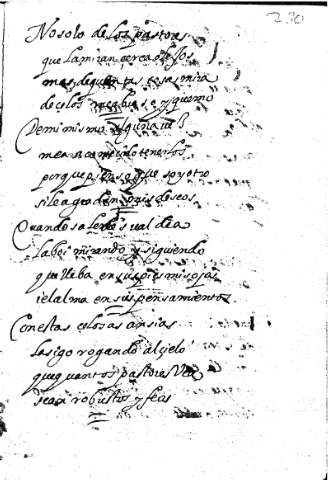 230
No solo de los pastores
que la miran cerca o lejos
mas de quantas cosas mira
de celos me abraso y quemo
De mi mismo alguna vez
me an acontecido tenerlos
porque pienso que soy otro
si le agradan mis deseos
Quando sale de su aldea
la boi mirando y siguiendo
que lleba en sus pies mis ojos
i el alma en sus pensamientos
Con estas celosas ansias
la sigo rogando al cielo
que quantos pastores vea
sean robustos y feos